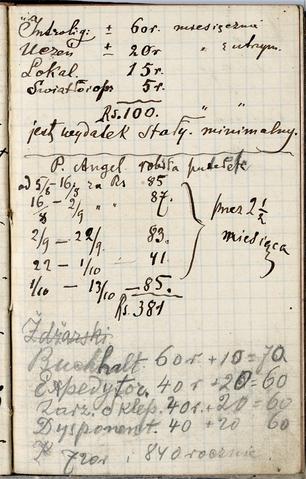 Introligi. ± 60r. miesięcznie
Uczeń ± 20r " z utrzym.
Lokal. 15r.
Światło i op 5r.
Rs. 100. " "
jest wydatek stały. minimalny.
P. Angel. robiła pudełek
od 5/8 16/8 za Rs 85
16/8 - 2/9 " " 87.
2/9 - 22/9 83.
22 - 1/10 - 41
1/10 - 13/10 - 85.
Rs. 381
przez 2 1/2
miesiąca
Żdżarski
Buchhalt. 60r + 10 = 70
Expedytor. 40r + 20 = 60
Zarz. sklep. 40r. + 20 = 60
Dysponent. 40 + 20 60
720r i 840 rocznie